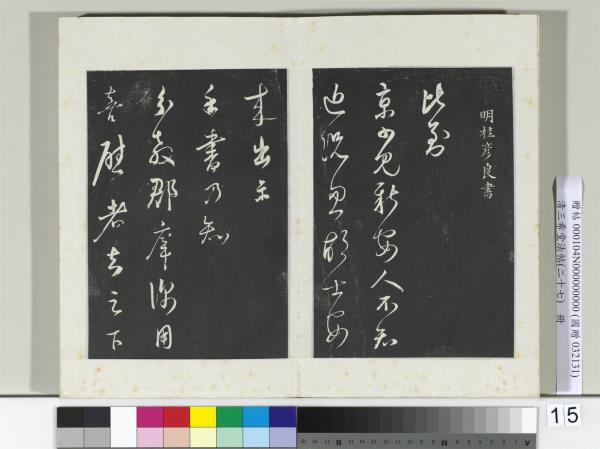 明桂彥良書
比到
京少見新安人不知
近況忽胡士安
來出示
手書乃知
分教郡庠深用
喜慰老之下
贈帖 000104N000000000 (國贈 032131)
清三希堂法帖(二十七) 冊
15